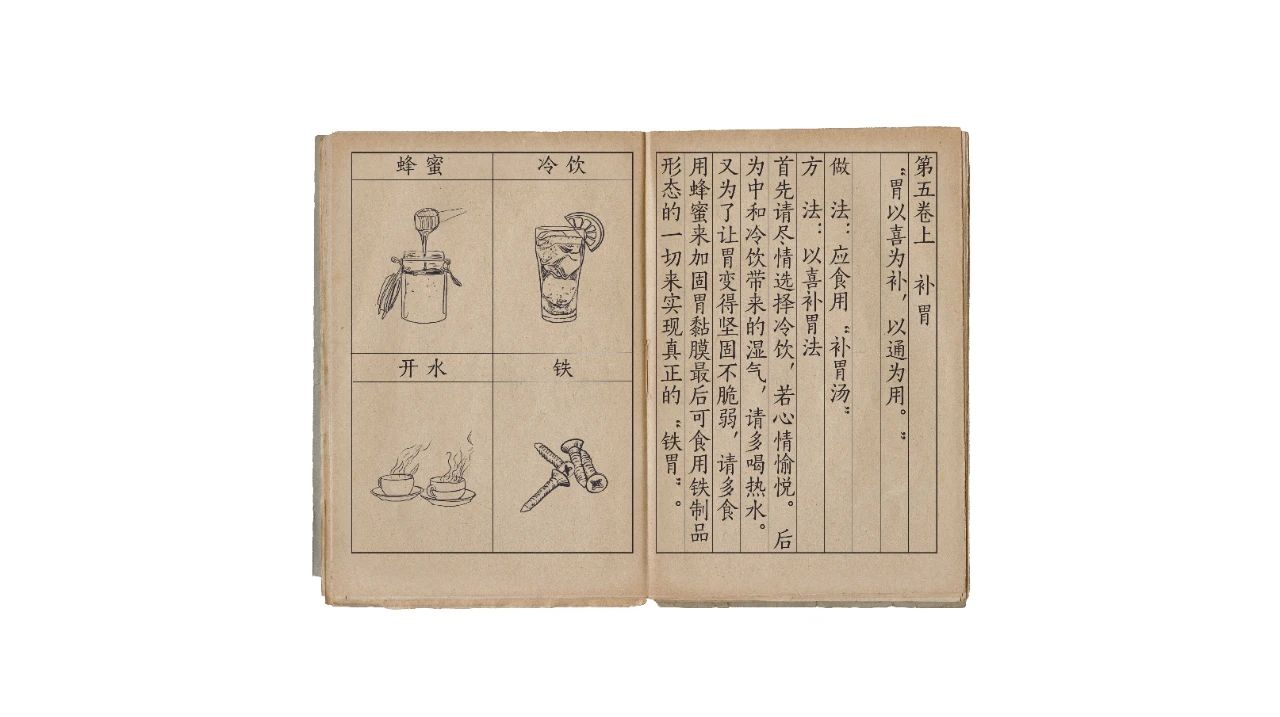 第五卷上 补胃
“胃以喜为补，以通为用。”
做 法：应食用“补胃汤”
方 法：以喜补胃法
首先请尽情选择冷饮，若心情愉悦。后
为中和冷饮带来的湿气，请多喝热水。
又为了让胃变得坚固不脆弱，请多食
用蜂蜜来加固胃黏膜最后可食用铁制品
形态的一切来实现真正的“铁胃”。
蜂蜜
冷饮
开水
铁